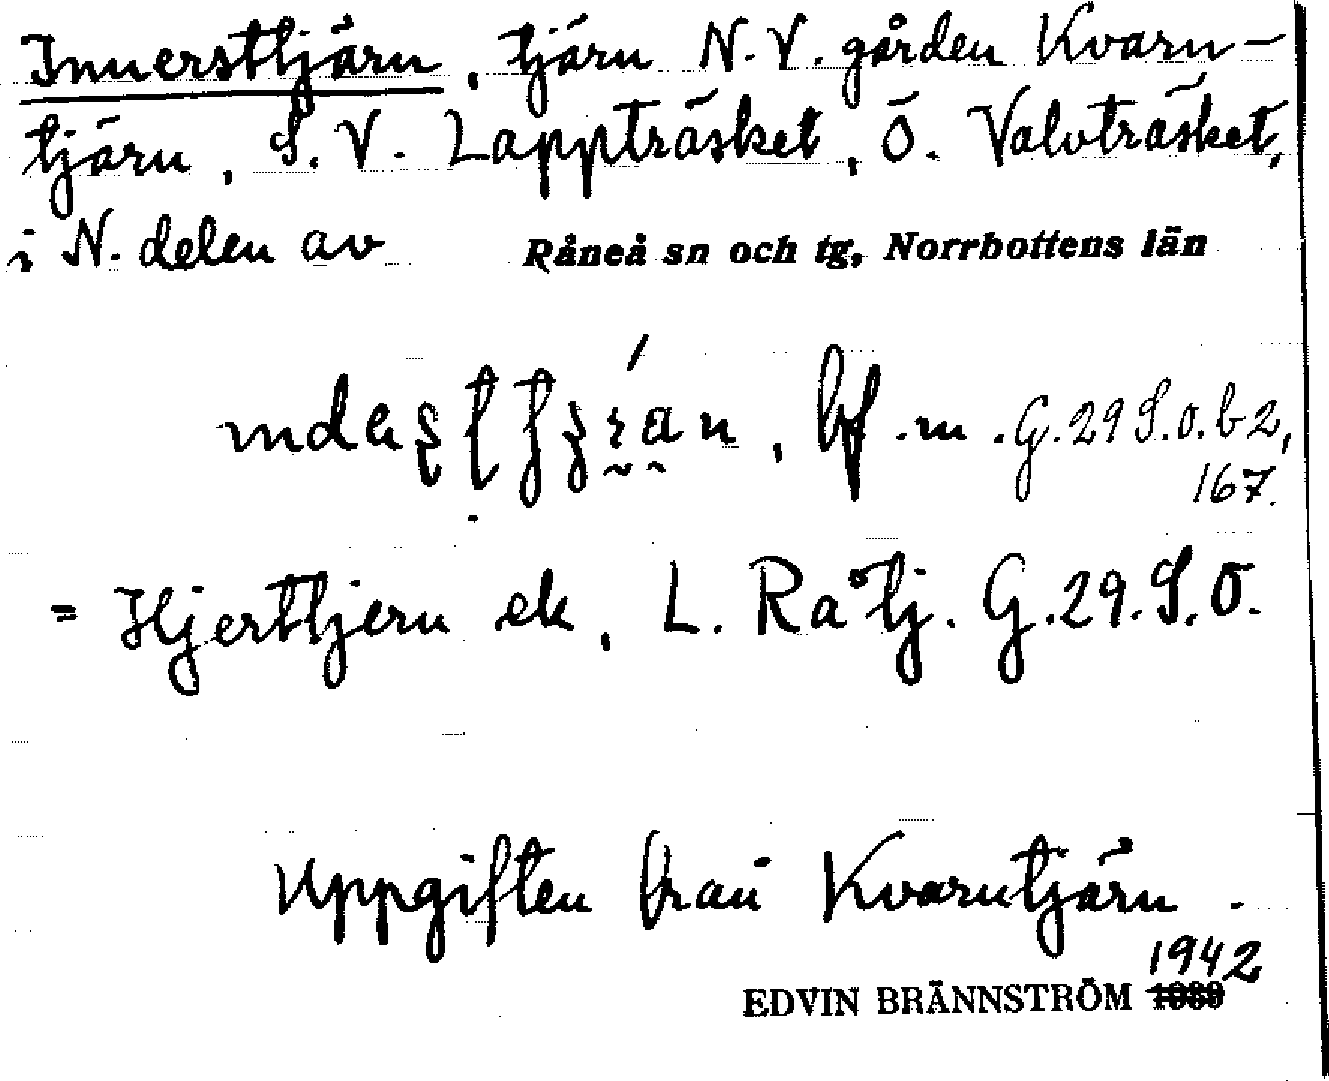 Innersttjärn, tjärn N.V. gården Kvarn-
tjärn, S.V. Lappträsket, Ö. Valvträsket,
i N. delen av Råneå sn och tg, Norrbottens län
bf.m. G.29 S.o.b2,
167.
= Hjerttjern ek, L. Råtj. G.29.S.O.
Uppgiften från Kvarntjärn.
1942
EDVIN BRÄNNSTRÖM 1939